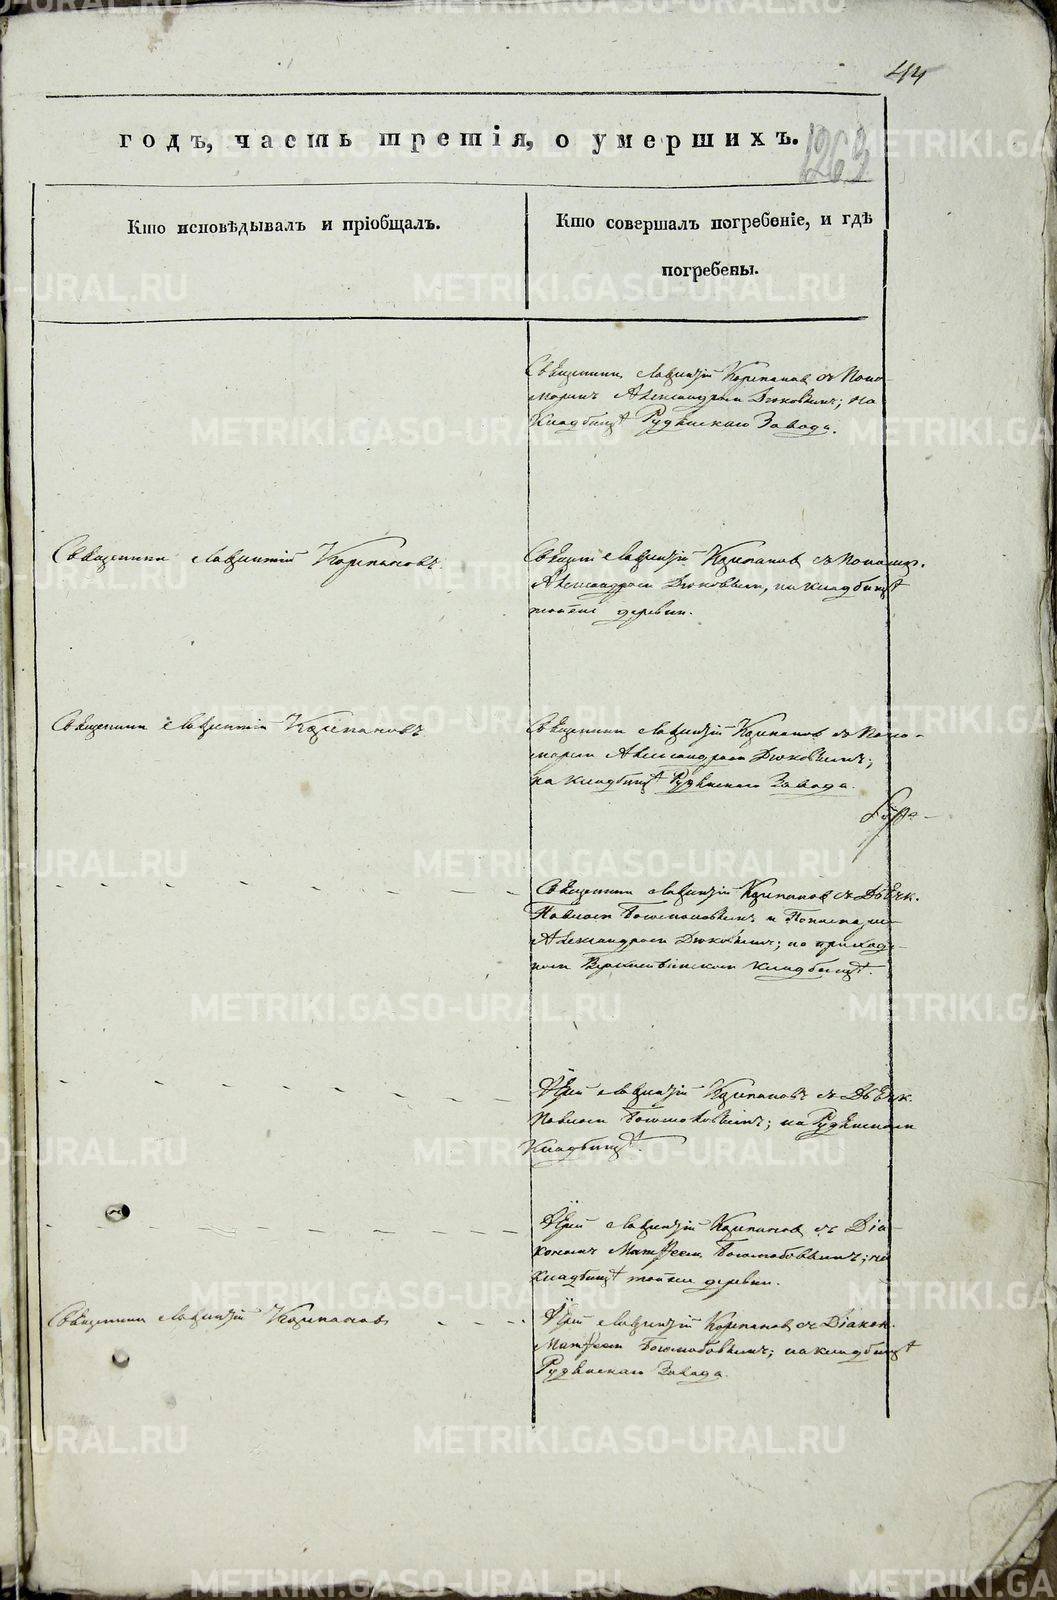 44
годъ, часть третія, о умершихъ.
1263
Кто исповѣдывалъ и пріобщалъ.
Кто совершалъ погребеніе, и гдѣ
погребены.
Священникъ Лаврентій Карпановъ съ Поно-
маремъ Александромъ; на
Кладбищѣ Рудянскаго Завода.
Священникъ Лаврентій Карпановъ.
Священ. Лаврентій Карпановъ съ Пономар.
Александромъ, на кладбищѣ
тойже деревни.
Священникъ Лаврентій Карпановъ
Священникъ Лаврентій Карпановъ съ Поно-
маремъ Александромъ;
на кладбищѣ Рудянскаго Завода.
Священникъ Лаврентій Карпановъ съ Дьячк.
Павломъ и Пономарем
Александромъ; на приход-
комъ кладбищѣ.
Іерей Лаврентій Карпановъ съ Дьячк.
Павломъ; на Рудянскомъ
Кладбищѣ.
Іерей Лаврентій Карпановъ съ Діа-
кономъ Матѳеемъ Боголюбовымъ; на
кладбищѣ тойже деревни.
Священникъ Лаврентій Карпановъ
Іерей Лаврентій Карпановъ съ Діакон.
Матѳеемъ Боголюбовымъ; на кладбищѣ
Рудянскаго Завода.
METRIKI.GASO-URAL.RU